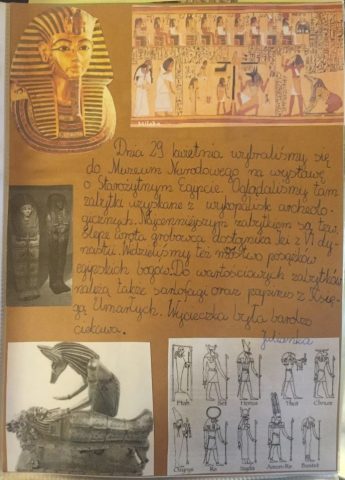 Dnia 29 kwietnia wybraliśmy się
do Muzeum Narodowego na wystawę
o Starożytnym Egipcie. Oglądaliśmy tam
zabytki uzyskane z wykopalisk archeolo-
gicznych. Najcenniejszym zabytkiem są tzw.
ślepe wrota grobowca dostojnika Izi z VI dy-
nastii. Widzieliśmy też mnóstwo posągów
egipskich bogów. Do wartościowych zabytków
należą także sarkofagi oraz papirus z Księ-
gi Umarłych. Wycieczka była bardzo
ciekawa.
Julianna
Ptah Set Horus Thot Chnum
Ozyrys Re Amon-Re Bastet